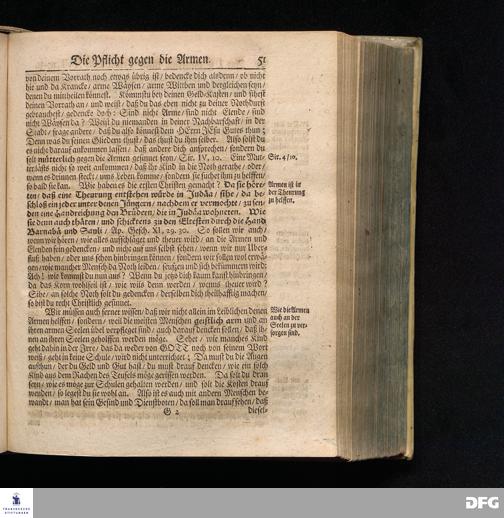 Die Pflicht gegen die Armen. 51
von deinem Vorrath noch etwas übrig ist / bedencke dich alsdenn / ob nicht
hie und da Krancke / arme Wäysen / arme Witben und dergleichen seyn /
denen du mittheilen könnest. Kömmstu bey deinen Geld-Kasten / und sihest
deinen Vorrath an / und weist / daß du das eben nicht zu deiner Nothdurfft
gebrauchest / gedencke doch: Sind nicht Arme / sind nicht Elende / sind
nicht Wäysen da? Weist du niemanden in deiner Nachbarschafft / in der
Stadt / frage andere / daß du also könnest dem HErrn JEsu Gutes thun;
Denn was du seinen Gliedern thust / das thust du ihm selber. Also solst du
es nicht darauf ankommen lassen / daß andere dich ansprechen / sondern du
solt mütterlich gegen die Armen gesinnet seyn / Sir. IV, 10. Eine Mut-
ter läßts nicht so weit ankommen / daß ihr Kind in die Noth gerathe / oder /
wenn es drinnen stecket / ums Leben komme / sondern sie suchet ihm zu helffen /
so bald sie kan. Wie haben es die ersten Christen gemacht? Da sie höre-
ten / daß eine Theurung entstehen würde in Judäa / sihe / da be-
schloß ein jeder unter den Jüngern / nachdem er vermochte / zu sen-
den eine Handreichung den Brüdern, die in Judäa wohneten. Wie
sie denn auch thäten / und schicktens zu den Eltesten durch die Hand
Barnabä und Sauli / Ap. Gesch. XI, 29. 30. So sollen wir auch /
wenn wir hören / wie alles aufschlägt und theuer wird / an die Armen und
Elenden fein gedencken / und nicht auf uns selbst sehen / wenn wir nur Uber-
fluß haben / oder uns schon hinbringen können / sondern wir sollen wol erwä-
gen / wie mancher Mensch da Noth leiden / seufzen und sich bekümmern wird:
Ach! wie kommst du nun aus? Wenn du jetzo dich kaum kanst hinbringen /
da das Korn wohlfeil ist / wie wils denn werden / wenns theuer wird?
Sihe / an solche Noth solt du gedencken / derselben dich theilhafftig machen /
so bist du recht Christlich gesinnet.
Wir müssen auch ferner wissen / daß wir nicht allein im Leiblichen denen
Armen helffen / sondern / weil die meisten Menschen geistlich arm und an
ihren armen Seelen übel verpfleget sind / auch darauf dencken sollen / daß ih-
nen an ihren Seelen geholffen werden möge. Sehet / wie manches Kind
geht dahin in der Irre / das da weder von GOTT noch von seinem Wort
weiß / geht in keine Schule / wird nicht unterrichtet; Da must du die Augen
aufthun / der du Geld und Gut hast / du must drauf dencken / wie ein solch
Kind aus dem Rachen des Teufels möge gerissen werden. Da solt du dran
seyn / wie es möge zur Schulen gehalten werden / und solt die Kosten drauf
wenden / so legest du sie wohl an. Also ist es auch mit andern Menschen be-
wandt; man hat sein Gesind und Dienstboten / da soll man drauf sehen / daß
G 2 diesel-
Sir. 4/10.
Armen ist in
der Theurung
zu helffen.
Wie die Armen
auch an der
Seelen zu ver-
sorgen sind.
FRANCKESCHE
STIFTUNGEN
DFG